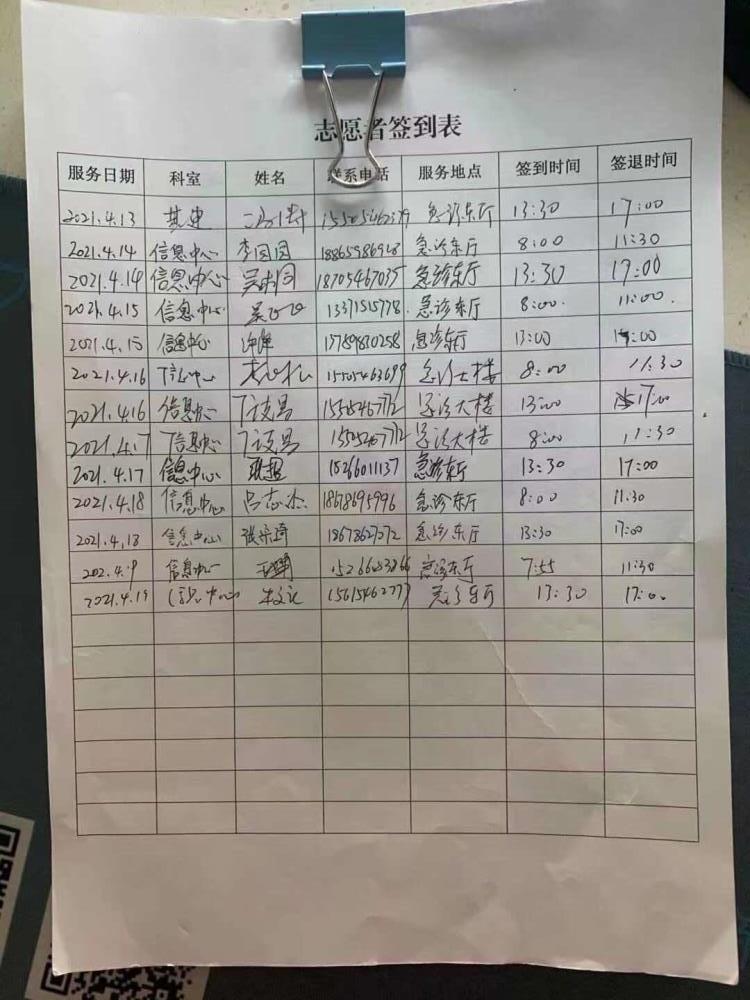 志愿者签到表
服务日期 科室 姓名 联系电话 服务地点 签到时间 签退时间
2021.4.13 基建 急诊东厅 13:30 17:00
2021.4.14 信息中心 李园园 18865986928 急诊东厅 8:00 11:30
2021.4.14 信息中心 18705467035 急诊东厅 13:30 17:00
2021.4.15 信息中心 13371515778 急诊东厅 8:00. 11:00.
信息中心 17789830258 急诊东厅 13:00
2021.4.16 信息中心 15505463699 急诊大楼 8:00 11:30
2021.4.16 信息中心 急诊大楼 13:00 17:00
2021.4.17 信息中心 急诊大楼 8:00 11:30
2021.4.17 信息中心 15266011137 急诊东厅 13:30 17:00
2021.4.18 信息中心 吕志杰 18678695996 急诊东厅 8:00 11.30
2021.4.18 信息中心 急诊东厅 13:30 17:00
信息中心 急诊东厅 7:55 11:30
2021.4.19 信息中心 急诊东厅 13:30 17:00